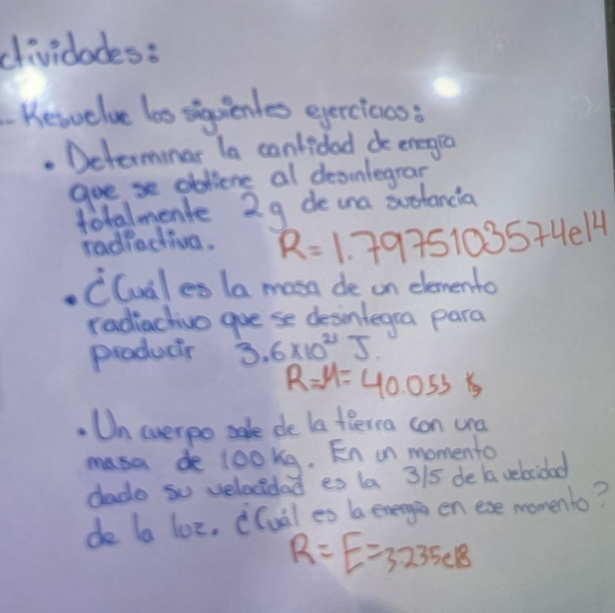 ctividades:
.- Resuelve los siguientes ejercicios:
• Determinar la cantidad de energía
que se obtiene al desintegrar
totalmente 2g de una sustancia
radiactiva. R=1.7975103574e14
• ¿Cuál es la masa de un elemento
radiactivo que se desintegra para
producir 3.6x10²¹ J.
R=M= 40.055 K
• Un cuerpo sale de la tierra con una
masa de 100 Kg. En un momento
dado su velocidad es la 3/5 de la velocidad
de la luz. ¿Cuál es la energía en ese momento?
R=E=3.235e18